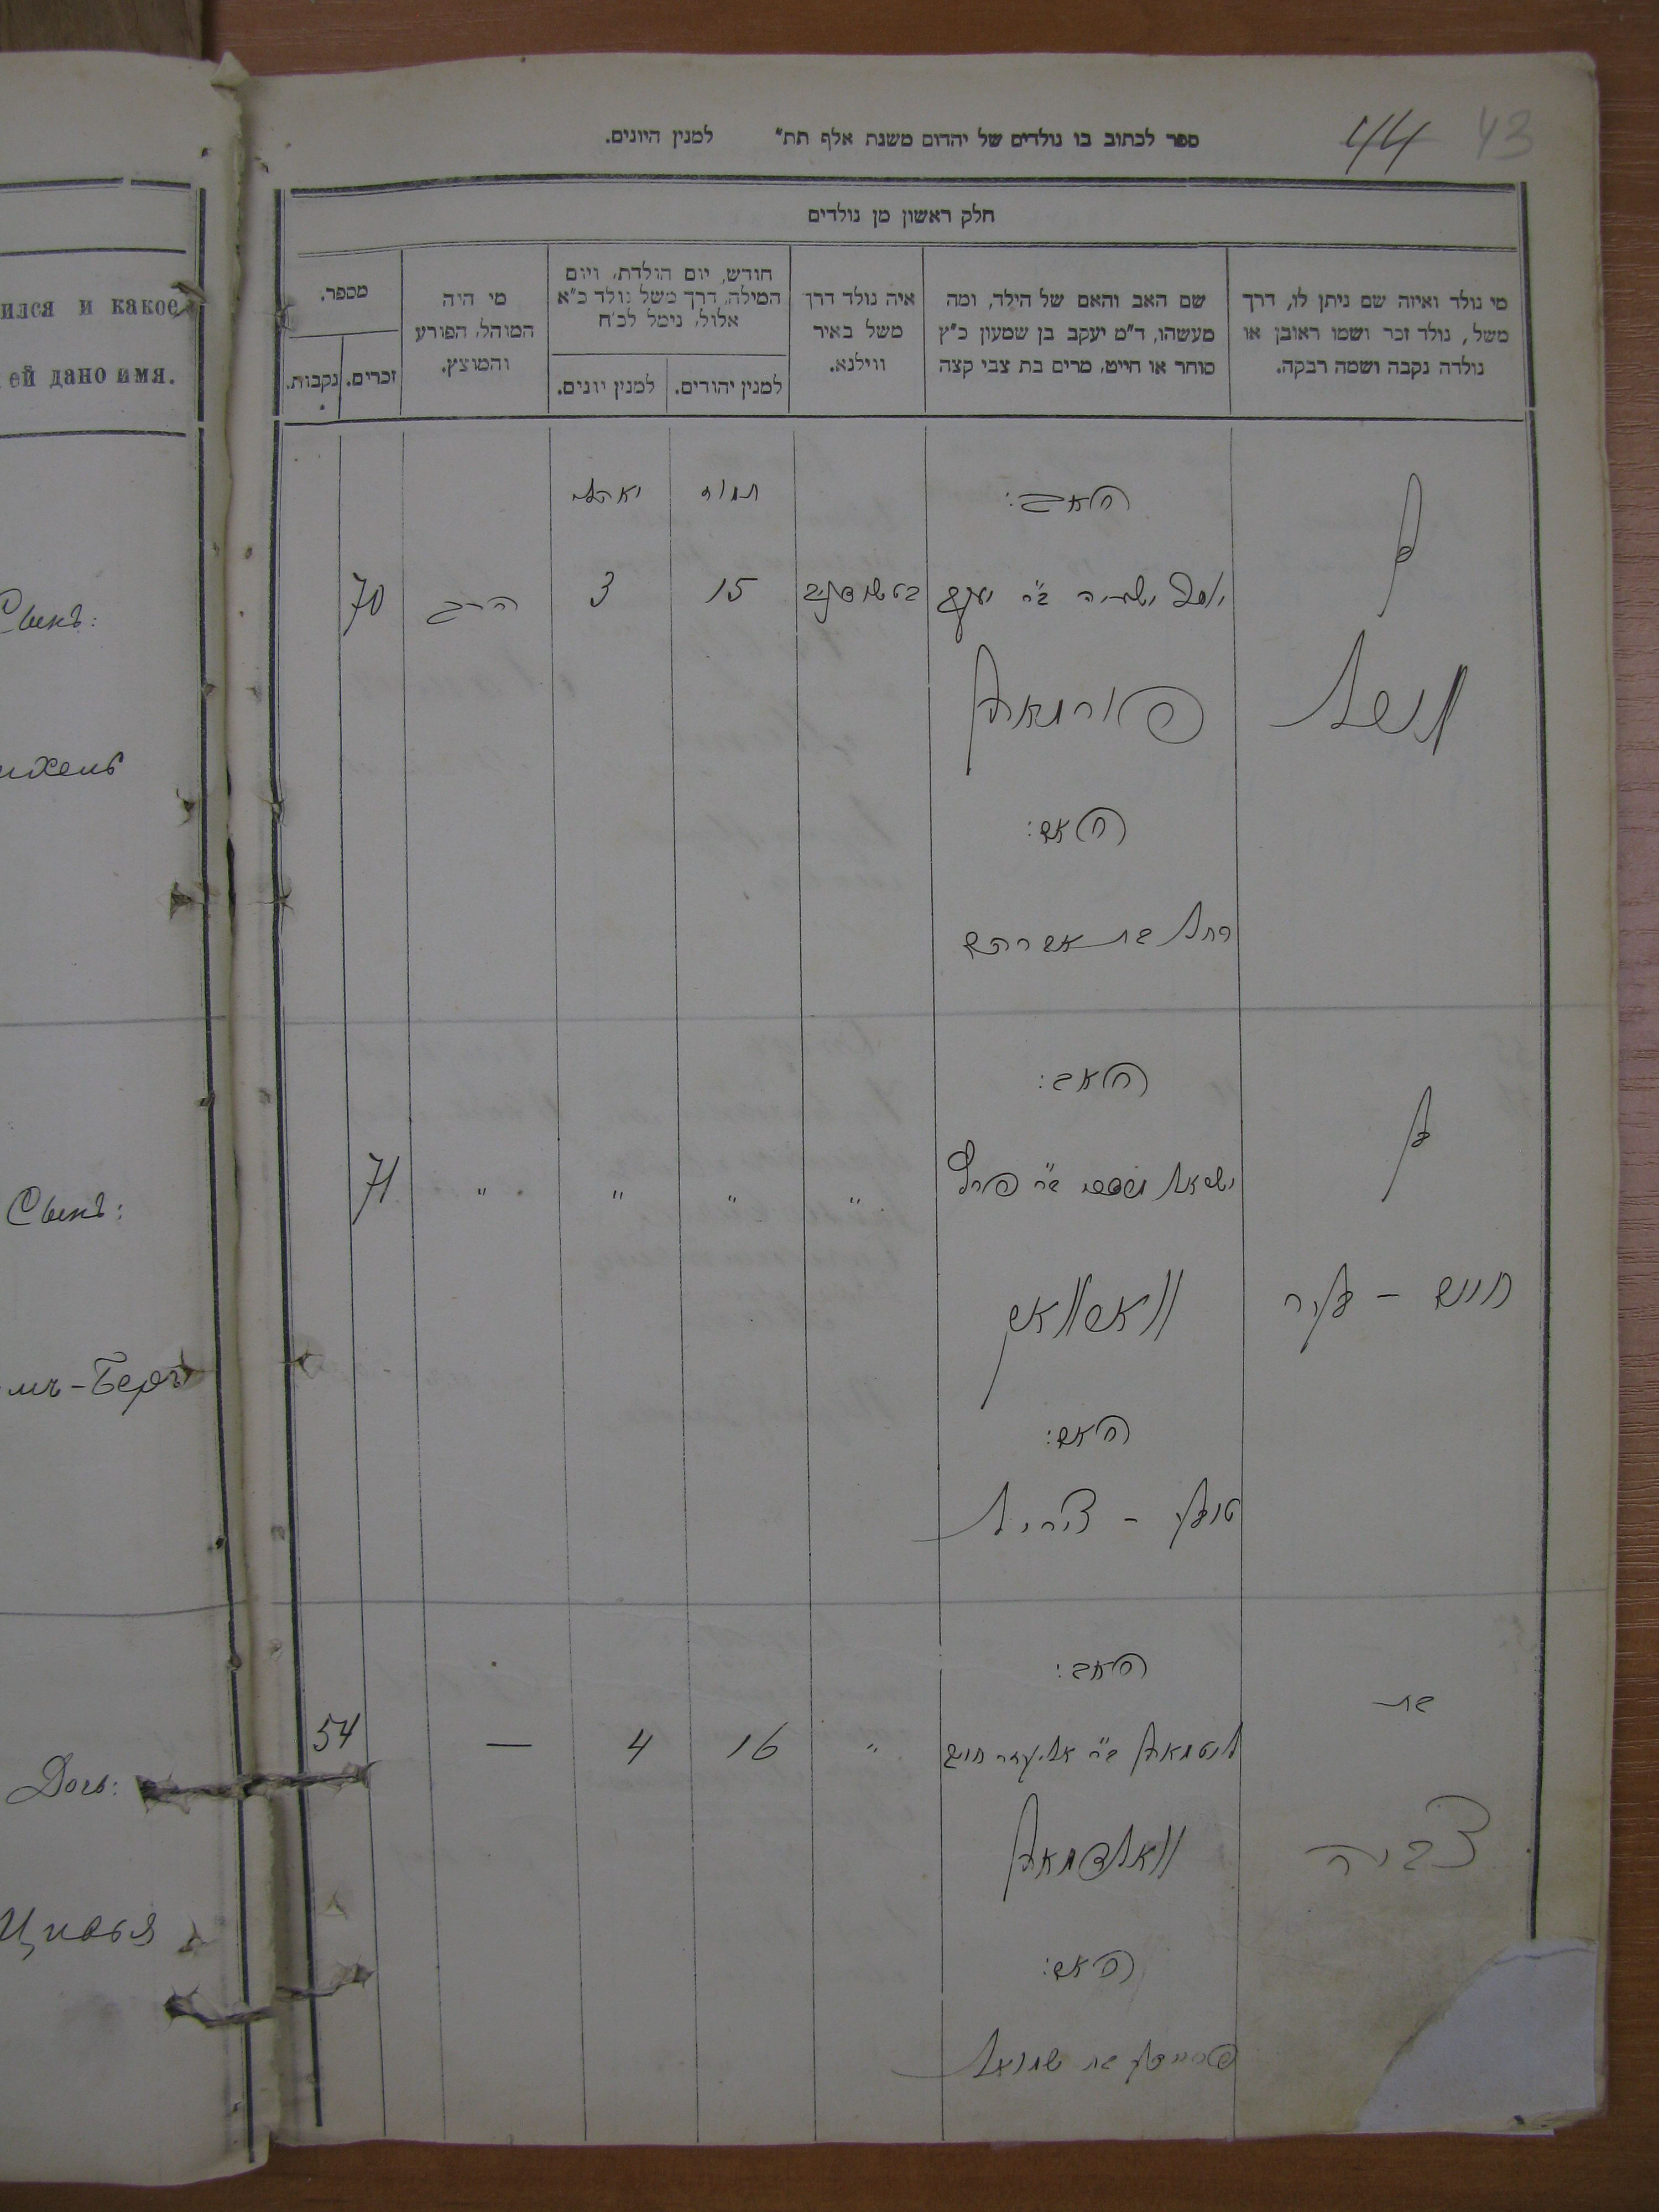 ился и какое
ей дано имя.
Сынъ:
ихель
Сынъ:
мъ-Беръ
Дочь:
Цивья
44 43
ספר לכתוב בו נולדים של יהדום משנת אלף תת" למנין היונים.
חלק ראשון מן נולדים
מי נולד ואיזה שם ניתן לו, דרך
משל, נולד זכר ושמו ראובן או
נולדה נקבה ושמה רבקה.
שם האב והאם של הילד, ומה
מעשהו, ד"מ יעקב בן שמעון כ"ץ
סוחר או חייט, מרים בת צבי קצה
איה נולד דרך
משל באיר
ווילנא.
חודש, יום הולדת, ויום
המילה, דרך משל נולד כ"א
אלול, נימל לכ"ח
למנין יהודים.
למנין יונים.
מי היה
המוהל, הפורע
והמוצץ.
מספר.
זכרים.
נקבות.
האב:
תמוז
יאהלי
בן
יוסף ישעיה ב"ר יעקב
15
3
הרב
70
פורמאן
האם:
רחל בת אברהם
האב:
בן
ישראל ב"ר
"
"
"
"
71
חיים - בער
וואסוואס
האם:
טויבע - צירל
האב:
בת
ליטמאן ב"ר אליעזר חיים
"
16
4
—
54
צביה
וואלדמאן
האם:
בת שמואל